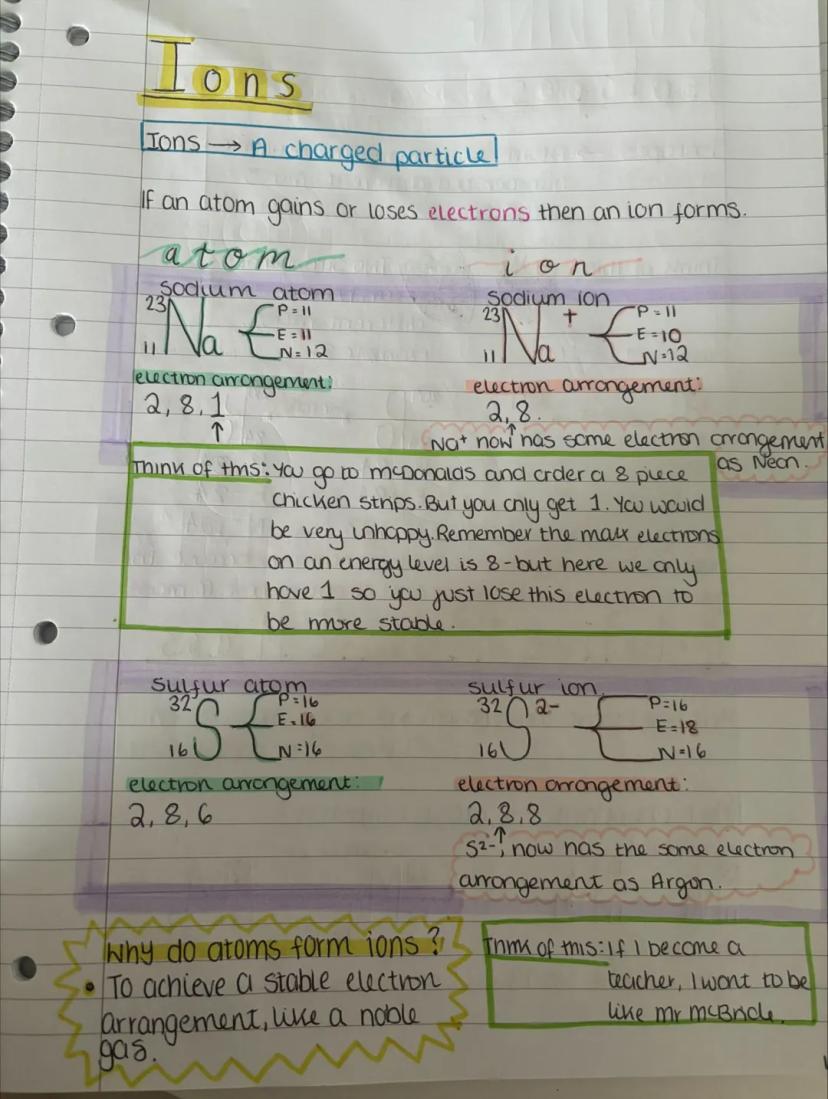 Ions
Ions → A charged particle
If an atom gains or loses electrons then an ion forms.
atom
ion
sodium atom
23
11 Na
P = 11
E = 11
N = 12
sodium ion
23
11 Na +
P = 11
E = 10
N = 12
electron arrangement:
2, 8, 1
↑
electron arrangement:
2, 8.
↑
Na+ now has same electron arrangement
as Neon.
Think of this: You go to mcDonalds and order a 8 piece
chicken strips. But you only get 1. You would
be very unhappy. Remember the max electrons
on an energy level is 8 - but here we only
have 1 so you just lose this electron to
be more stable.
sulfur atom
32
16 S
P = 16
E = 16
N = 16
sulfur ion
32
16 S 2-
P = 16
E = 18
N = 16
electron arrangement:
2, 8, 6
electron arrangement:
2, 8, 8
↑
S2-, now has the same electron
arrangement as Argon.
Why do atoms form ions?
• To achieve a stable electron
arrangement, like a noble
gas.
Think of this: If I become a
teacher, I want to be
like mr mcBride.